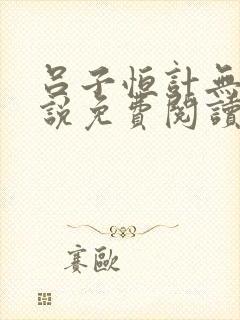 呂子恒計無
說免費閱讀
賽歐